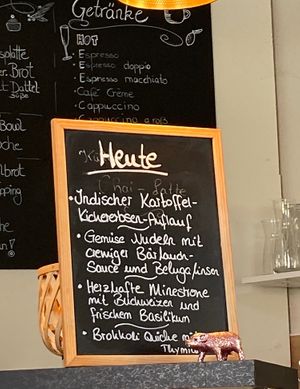 Getränke
HOT
• Espresso
• Espresso doppio
• Espresso macchiato
• Café Crème
• Cappuccino
• Cappuccino
Brot
Dattel
Süße
Bowl
Heute
Chai - Latte
• Indischer Kartoffel-
Kichererbsen-Auflauf
• Gemüse Nudeln mit
cremiger Bärlauch-
Sauce und Belugalinsen
• Herzhafte Minestrone
mit Buchweizen und
frischem Basilikum
• Brokkoli Quiche
Thymian